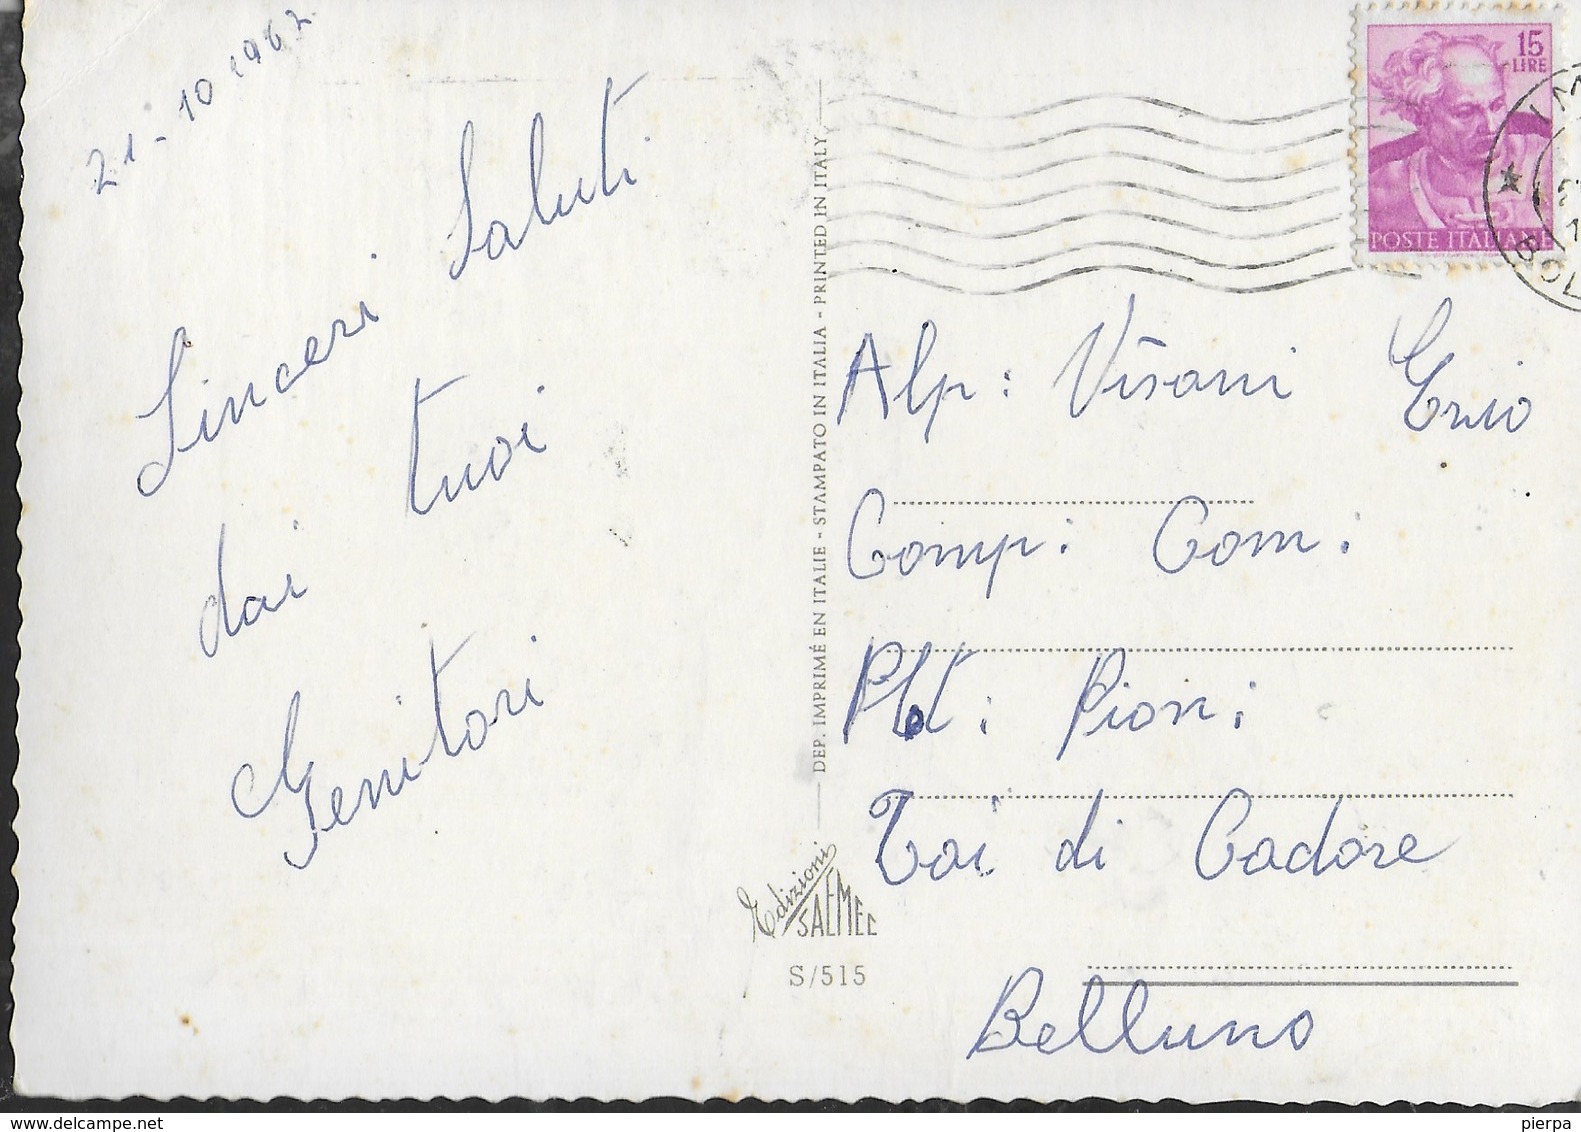 21-10 1962
Sinceri Saluti
dai tuoi
Genitori
15
LIRE
POSTE ITALIANE
DEP. IMPRIMÉ EN ITALIE - STAMPATO IN ITALIA - PRINTED IN ITALY
Edizioni
SAEMEC
S/515
Alp: Visani Enio
Comp: Com:
Plot: Pion:
Tai di Cadore
Belluno
delcampe.net
pierpa